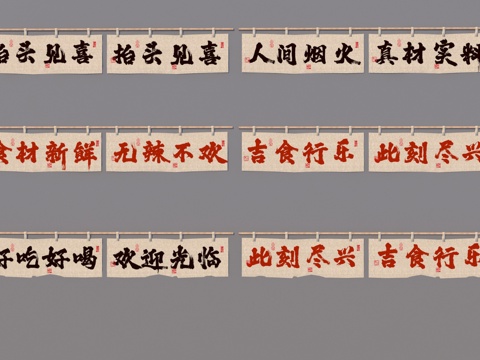 抬头见喜 抬头见喜 人间烟火 真材实料
食材新鲜 无辣不欢 吉食行乐 此刻尽兴
好吃好喝 欢迎光临 此刻尽兴 吉食行乐